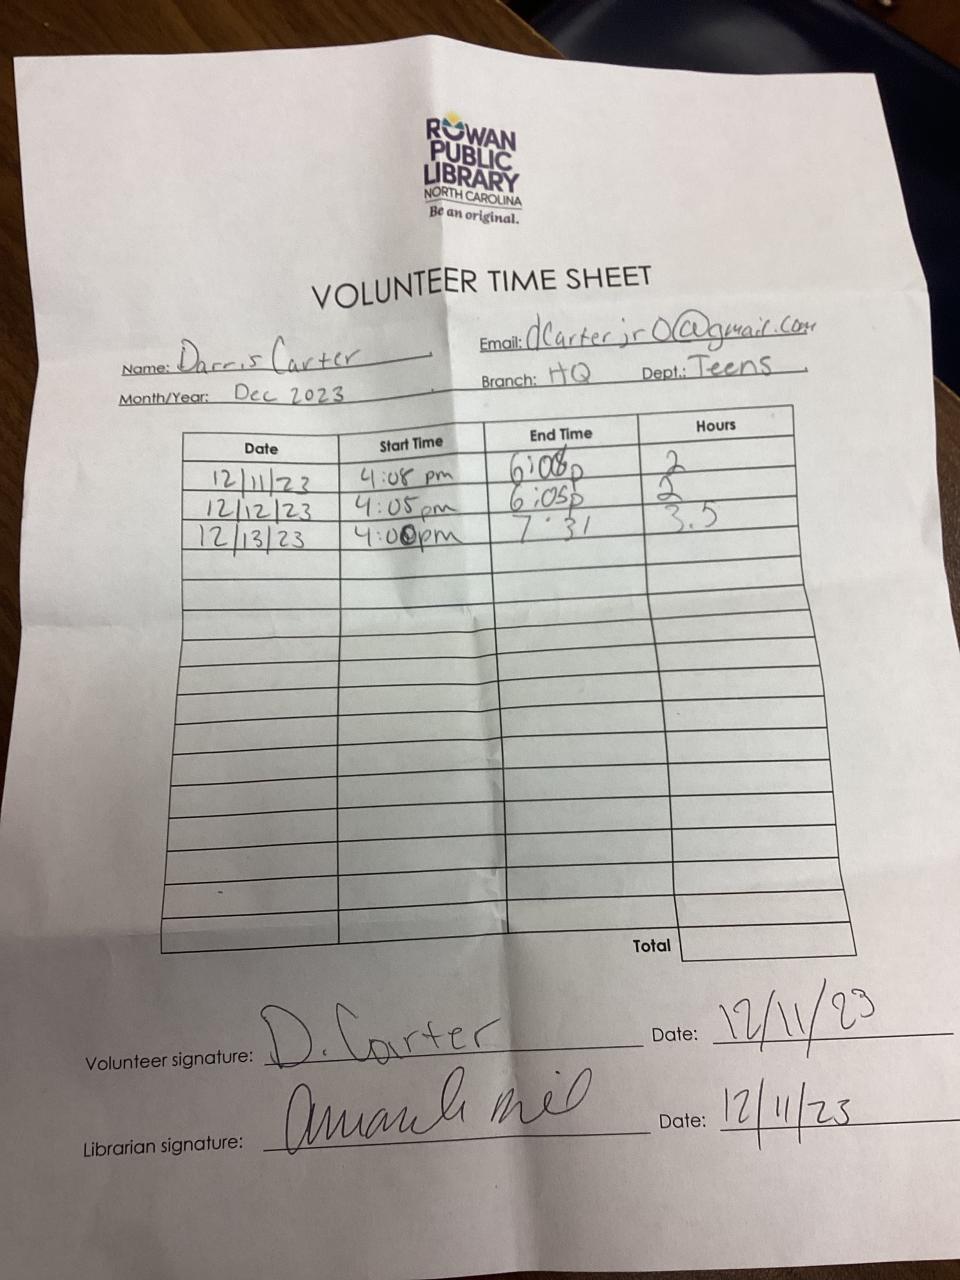 ROWAN
PUBLIC
LIBRARY
NORTH CAROLINA
Be an original.
VOLUNTEER TIME SHEET
Name: Darris Carter Email: dCarterjr0@gmail.com
Month/Year: Dec 2023 Branch: HQ Dept.: Teens
Date Start Time End Time Hours
12/11/23 4:08 pm 6:08p 2
12/12/23 4:05pm 6:05p 2
12/13/23 4:00pm 7:31 3.5
Total
Volunteer signature: D. Carter Date: 12/11/23
Librarian signature: Date: 12/11/23